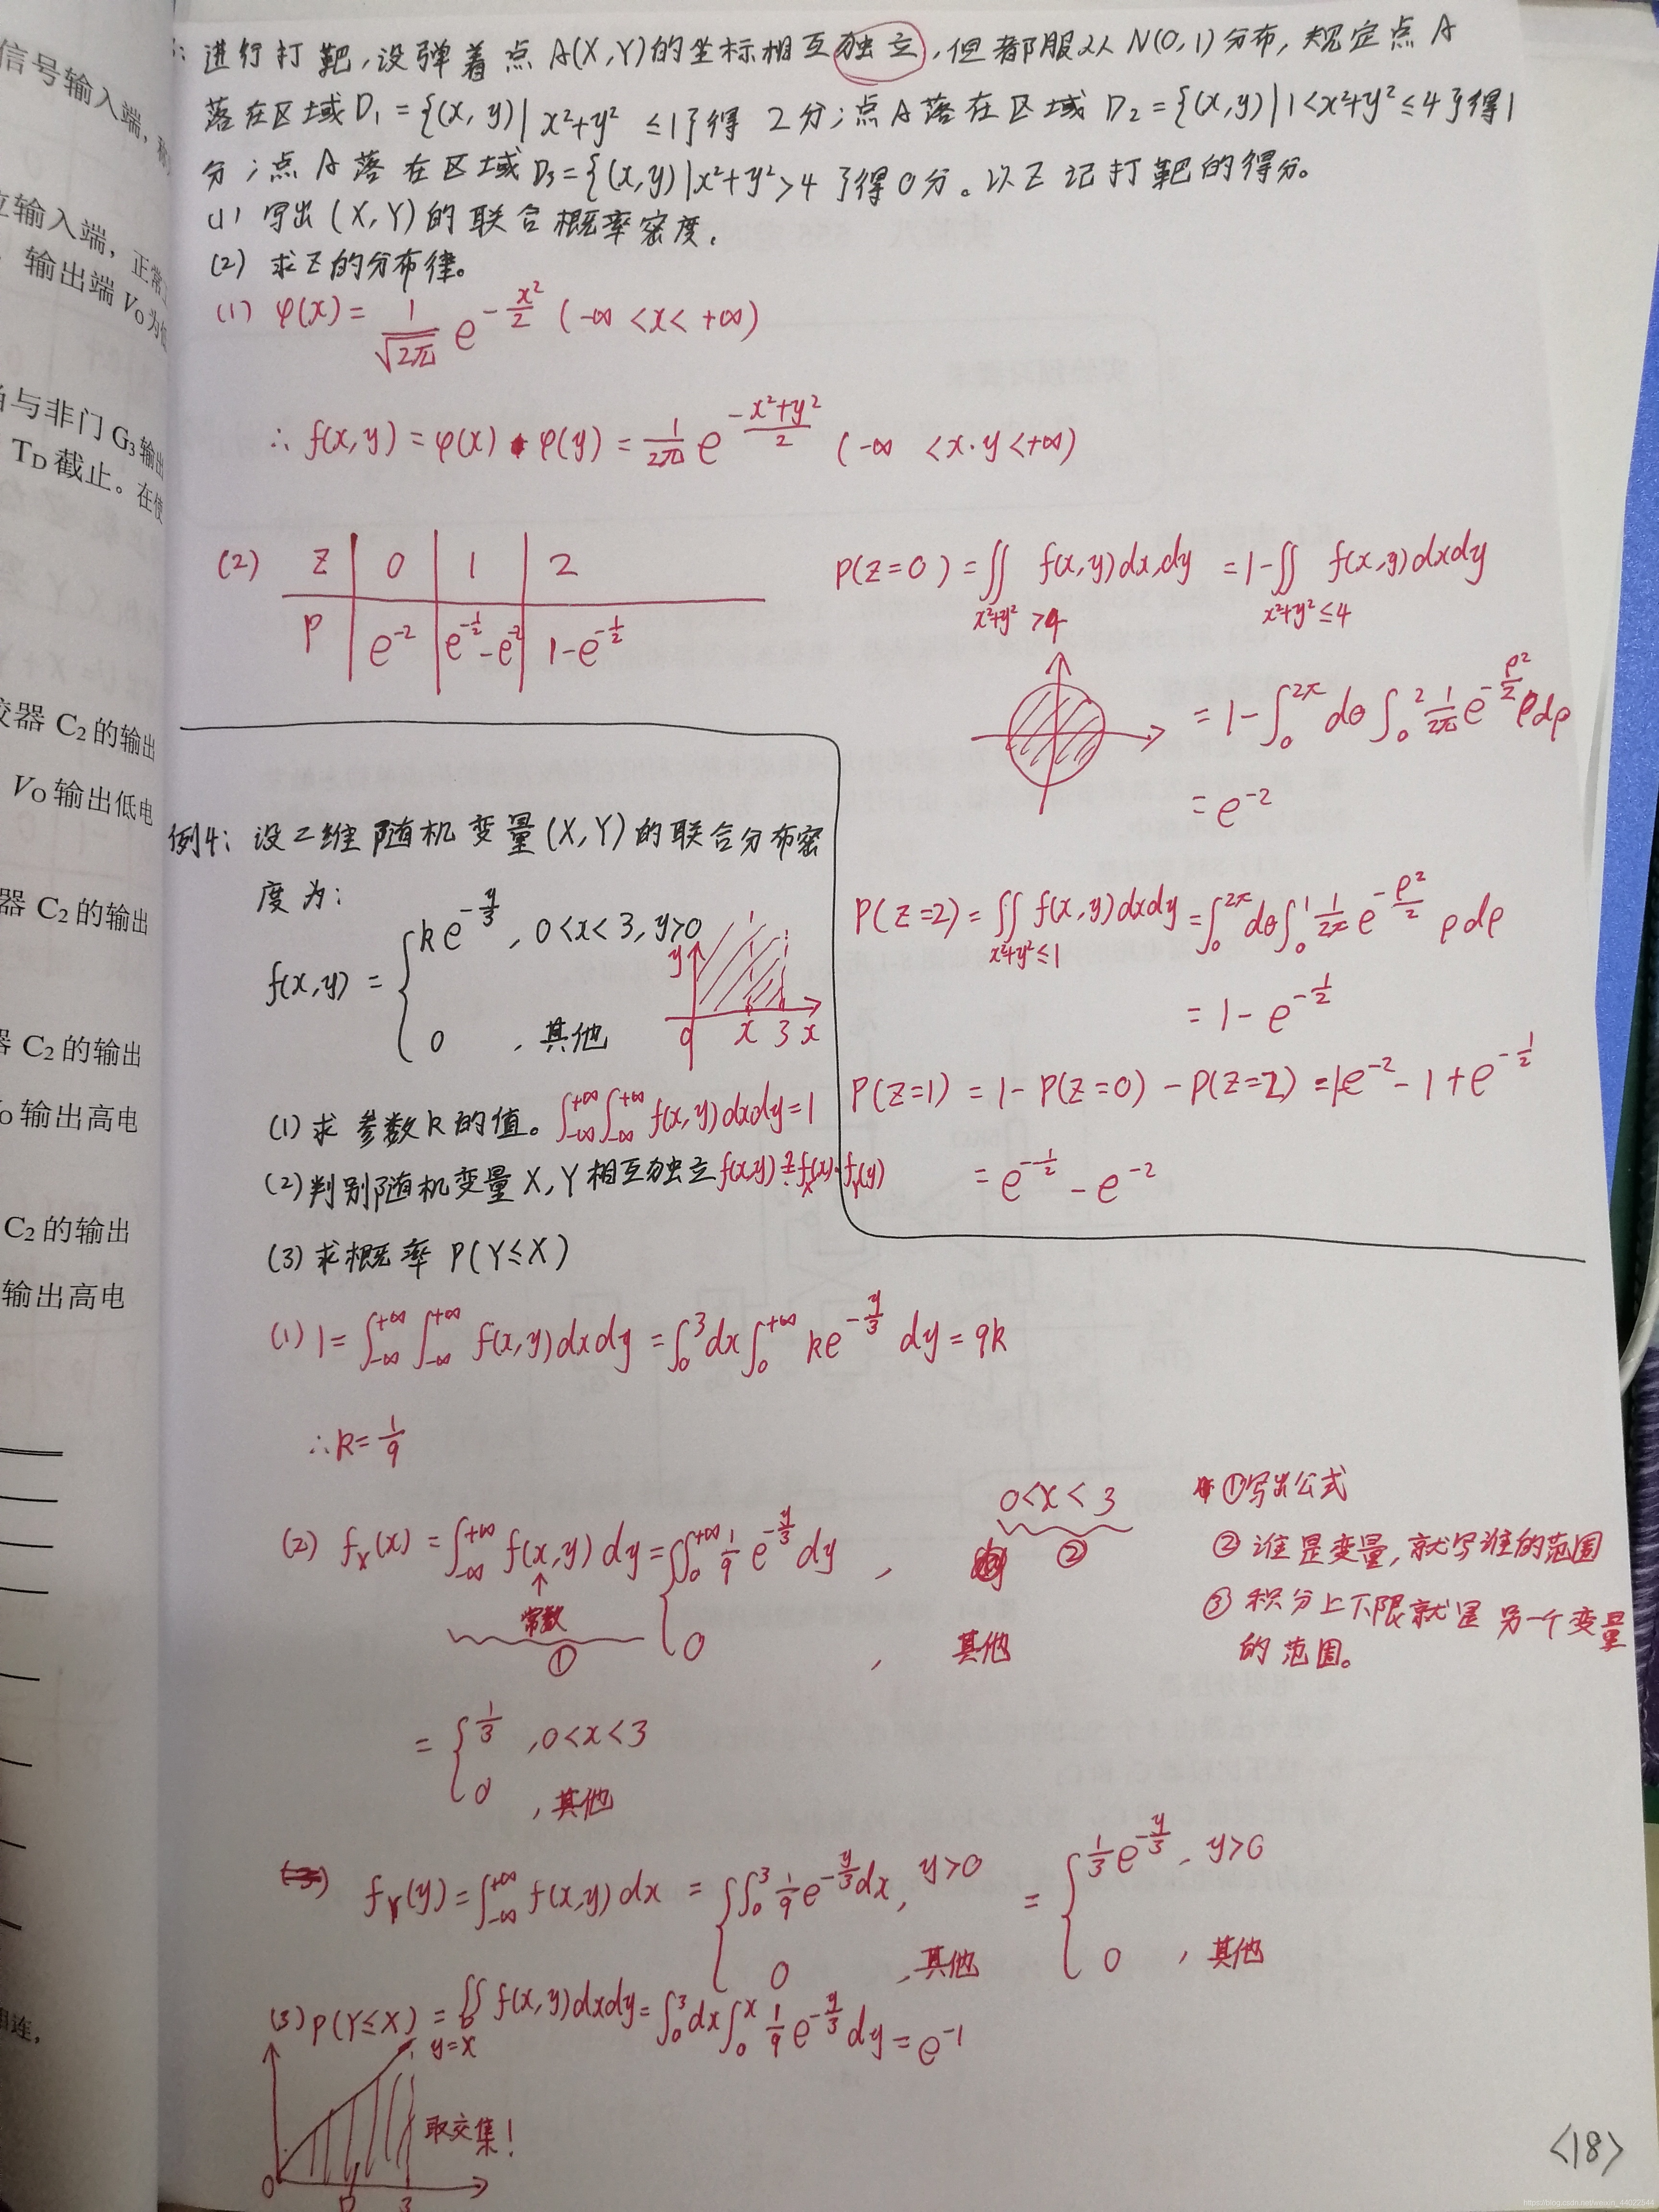 信号输入端，
立输入端，正常
输出端 VO为低
与非门 G3输出
TD截止。在使
较器 C2的输出
VO输出低电
器 C2的输出
器 C2的输出
O输出高电
C2的输出
输出高电
相连，
: 进行打靶,设弹着点A(X,Y)的坐标相互独立,但都服从N(0,1)分布,规定点A
落在区域D₁={(x,y)|x²+y²≤1}得2分;点A落在区域D₂={(x,y)|1<x²+y²≤4}得1
分;点A落在区域D₃={(x,y)|x²+y²>4}得0分。以Z记打靶的得分。
(1) 写出(X,Y)的联合概率密度.
(2) 求Z的分布律。
(1) φ(x)= 1/√2π e^(-x²/2) (-∞<x<+∞)
∴ f(x,y)=φ(x)·φ(y)= 1/2π e^(-(x²+y²)/2) (-∞<x·y<+∞)
(2) Z 0 1 2
P e⁻² e^(-1/2)-e⁻² 1-e^(-1/2)
P(Z=0)=∬_(x²+y²>4) f(x,y)dxdy =1-∬_(x²+y²≤4) f(x,y)dxdy
=1-∫₀^2π dθ∫₀² 1/2π e^(-ρ²/2) ρdρ
=e⁻²
P(Z=2)=∬_(x²+y²≤1) f(x,y)dxdy=∫₀^2π dθ∫₀¹ 1/2π e^(-ρ²/2) ρdρ
=1-e^(-1/2)
P(Z=1)=1-P(Z=0)-P(Z=2)=1-e⁻²-1+e^(-1/2)
=e^(-1/2)-e⁻²
例4: 设二维随机变量(X,Y)的联合分布密
度为:
f(x,y)={ke^(-y/3), 0<x<3,y>0
0 ,其他
y
0 x 3 x
(1)求参数k的值。∫_-∞^+∞∫_-∞^+∞ f(x,y)dxdy=1
(2)判别随机变量X,Y相互独立 f(x,y)≟f_X(x)·f_Y(y)
(3)求概率P(Y≤X)
(1) 1=∫_-∞^+∞∫_-∞^+∞ f(x,y)dxdy=∫₀³dx∫₀^+∞ ke^(-y/3) dy=9k
∴k=1/9
(2) f_X(x)=∫_-∞^+∞ f(x,y)dy={∫₀^+∞ 1/9 e^(-y/3) dy , 0<x<3
②
↑
常数
①
0 , 其他
①写出公式
②谁是变量,就写谁的范围
③积分上下限就是另一个变量
的范围。
={1/3 ,0<x<3
0 ,其他
(3)
f_Y(y)=∫_-∞^+∞ f(x,y)dx={∫₀³ 1/9 e^(-y/3)dx, y>0 ={1/3 e^(-y/3), y>0
0 ,其他 0 ,其他
(3)P(Y≤X)=∬_D f(x,y)dxdy=∫₀³dx∫₀^x 1/9 e^(-y/3) dy=e⁻¹
y=x
取交集!
0 D 3
<18>
https://blog.csdn.net/weixin_44022544